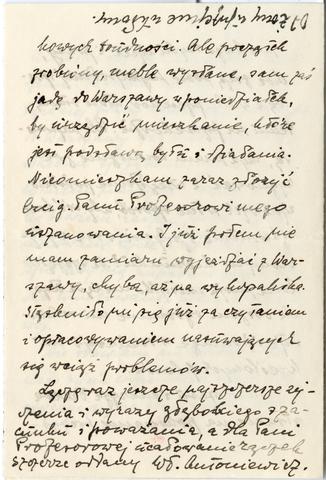 kowych trudności. Ale początek
zrobiony, meble wysłane, sam zaś
jadę do Warszawy w poniedziałek,
by urządzić mieszkanie, które
jest podstawą bytu i działania.
Nieomieszkam zaraz złożyć
Czcig. Panu Profesorowi mego
uszanowania. I już potem nie
mam zamiaru wyjeżdżać z War-
szawy, chyba, aż na wykopaliska.
Stęskniło mi się już za czytaniem
i opracowywaniem nasuwających
się wciąż problemów.
Łączę raz jeszcze najszczersze ży-
czenia i wyrazy głębokiego sza-
cunku i poważania, a dla Pani
Profesorowej ucałowanie rączek
szczerze oddany Wł. Antoniewicz.